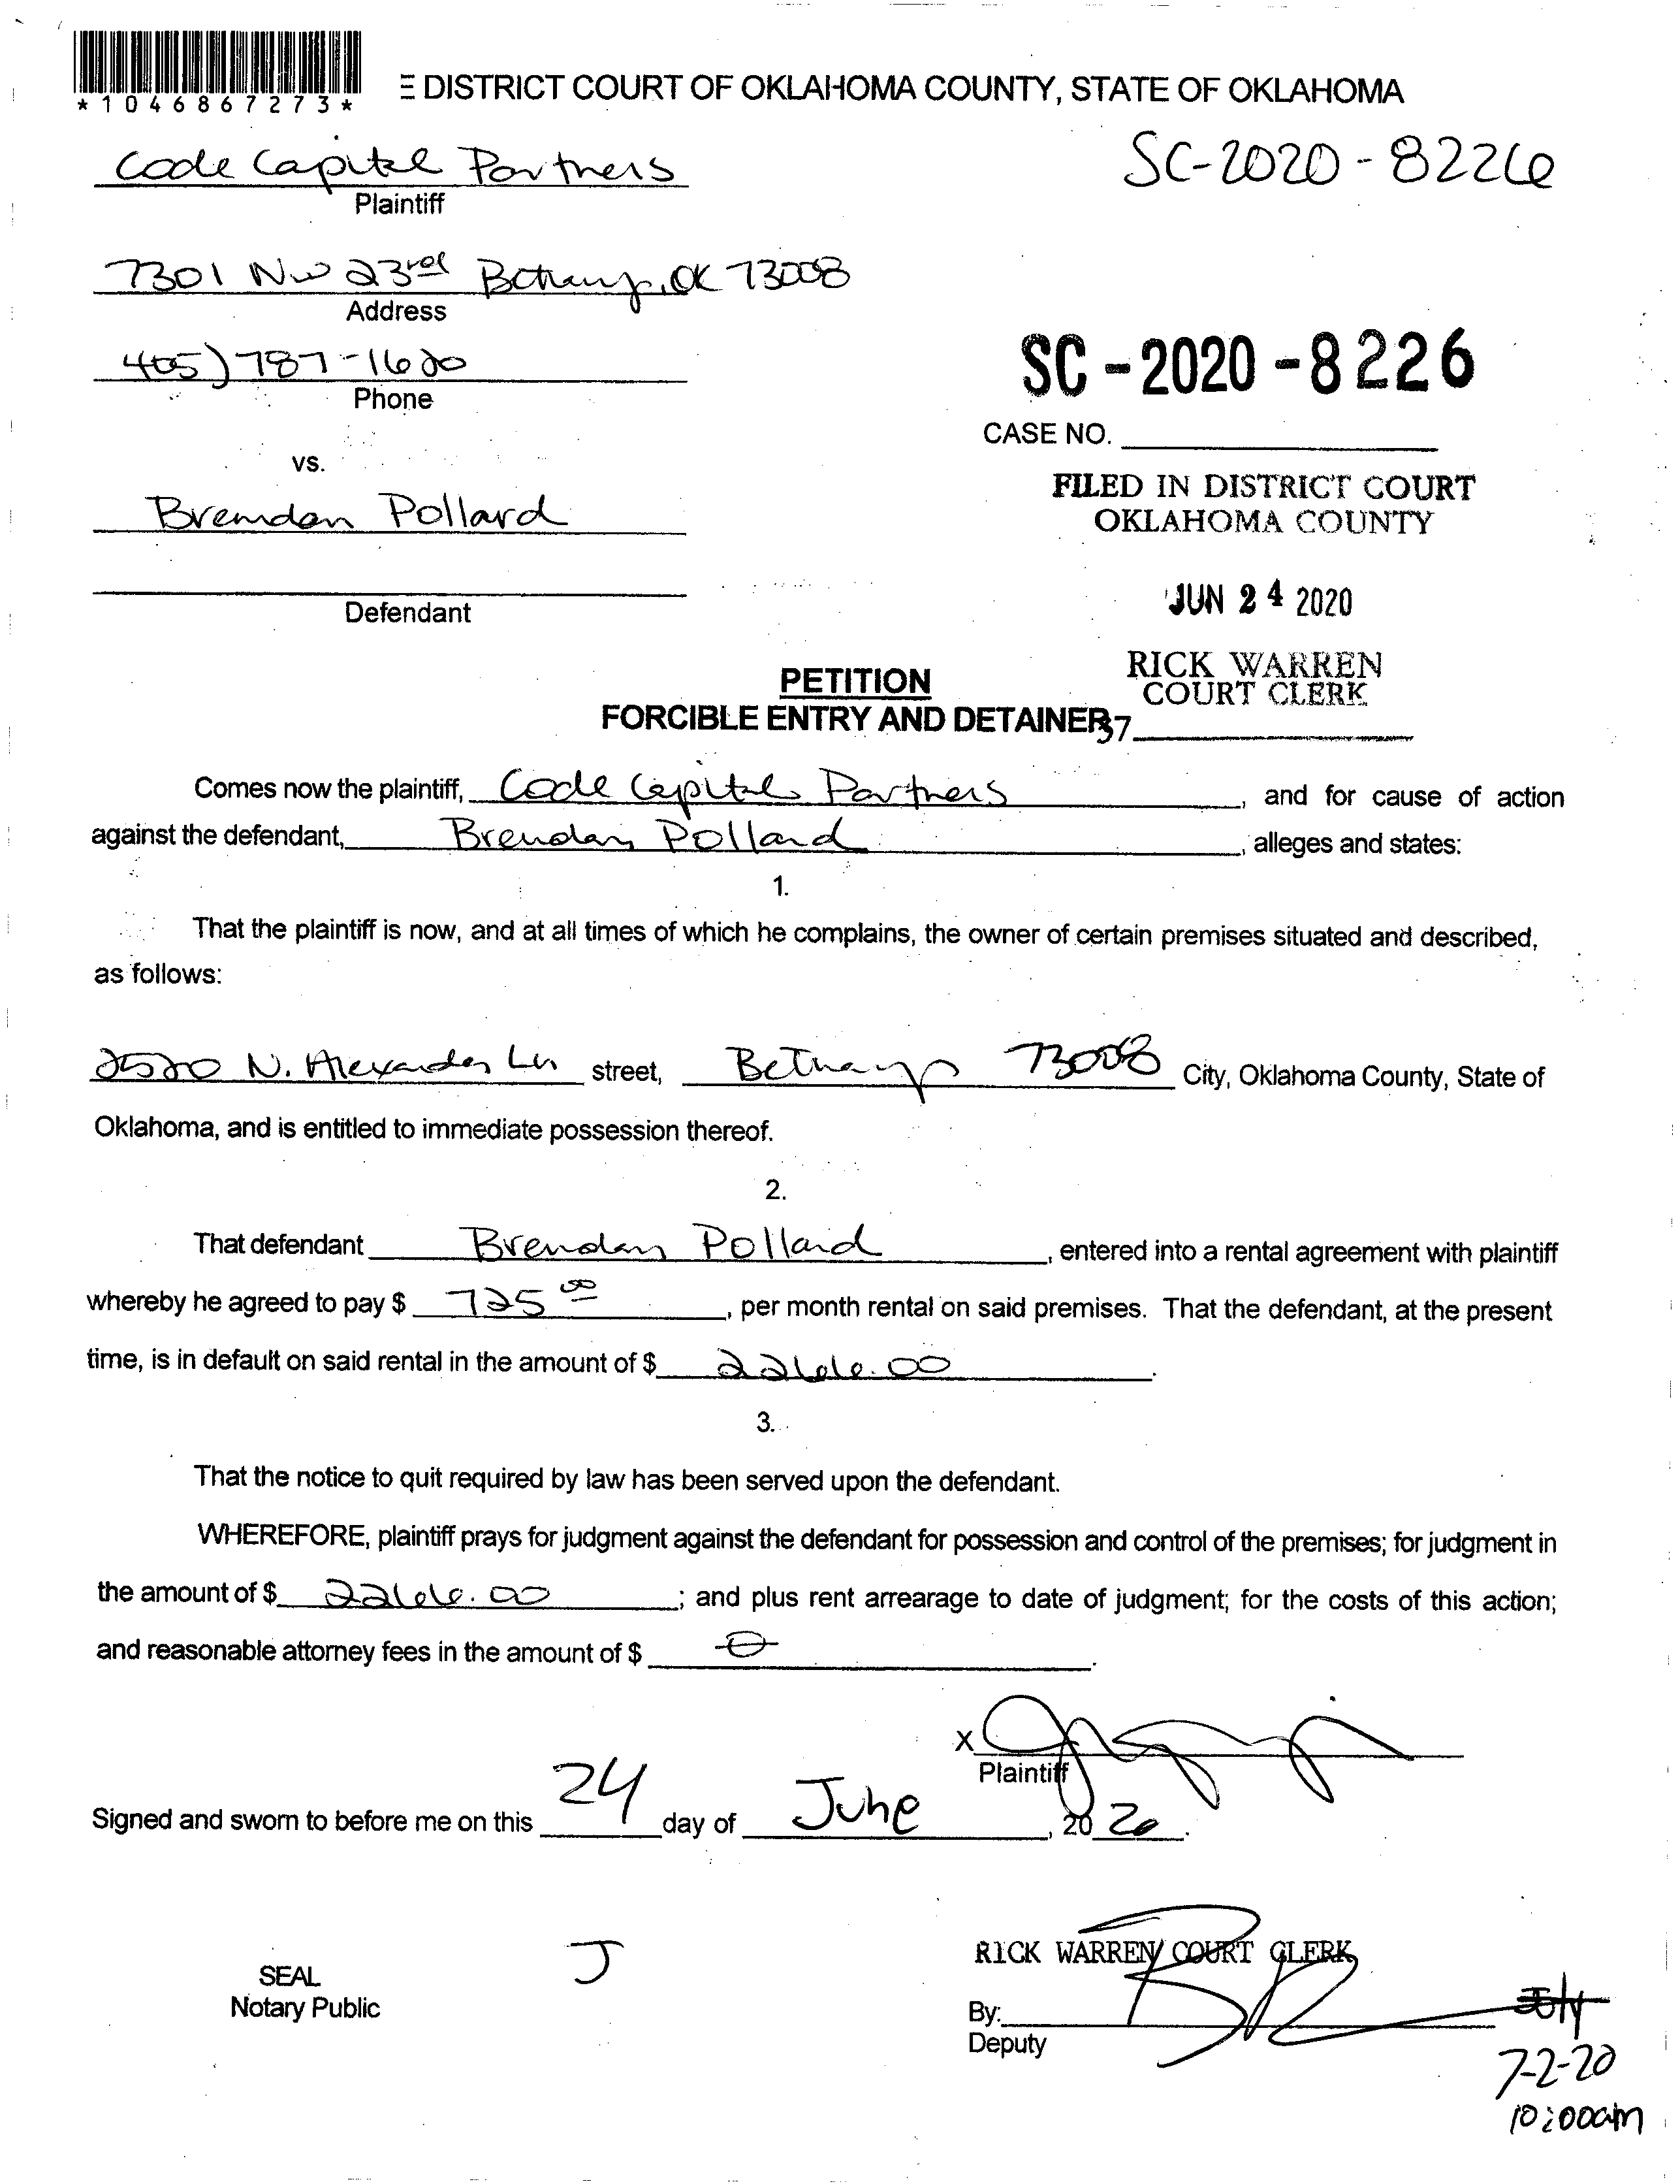 *1046867273*
E DISTRICT COURT OF OKLAHOMA COUNTY, STATE OF OKLAHOMA
SC-2020-8226
Code Capital Partners
Plaintiff
7301 NW 23rd Bethany, OK 73008
Address
405) 787-1620
Phone
SC-2020-8226
CASE NO.
vs.
FILED IN DISTRICT COURT
OKLAHOMA COUNTY
Brendan Pollard
JUN 24 2020
Defendant
RICK WARREN
COURT CLERK
PETITION
FORCIBLE ENTRY AND DETAINER
37
Comes now the plaintiff, Code Capital Partners, and for cause of action
against the defendant, Brendan Pollard, alleges and states:
1.
That the plaintiff is now, and at all times of which he complains, the owner of certain premises situated and described,
as follows:
2520 N. Alexander Ln street, Bethany 73008 City, Oklahoma County, State of
Oklahoma, and is entitled to immediate possession thereof.
2.
That defendant Brendan Pollard, entered into a rental agreement with plaintiff
whereby he agreed to pay $ 725 00, per month rental on said premises. That the defendant, at the present
time, is in default on said rental in the amount of $ 2266.00.
3.
That the notice to quit required by law has been served upon the defendant.
WHEREFORE, plaintiff prays for judgment against the defendant for possession and control of the premises; for judgment in
the amount of $ 2266.00; and plus rent arrearage to date of judgment; for the costs of this action;
and reasonable attorney fees in the amount of $ 0.
X
Plaintiff
Signed and sworn to before me on this 24 day of June, 2020.
J
SEAL
Notary Public
RICK WARREN COURT CLERK
By:
Deputy
July
7-2-20
10:00am